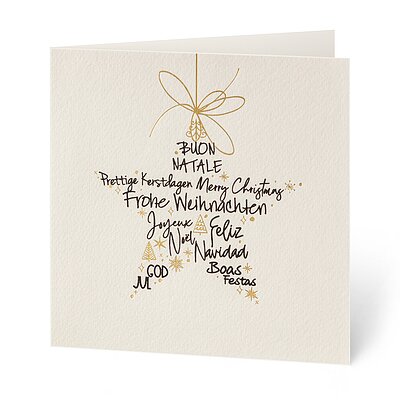 BUON
NATALE
Prettige Kerstdagen Merry Christmas
Frohe Weihnachten
Joyeux Feliz
Noël Navidad
GOD Boas
M Festas